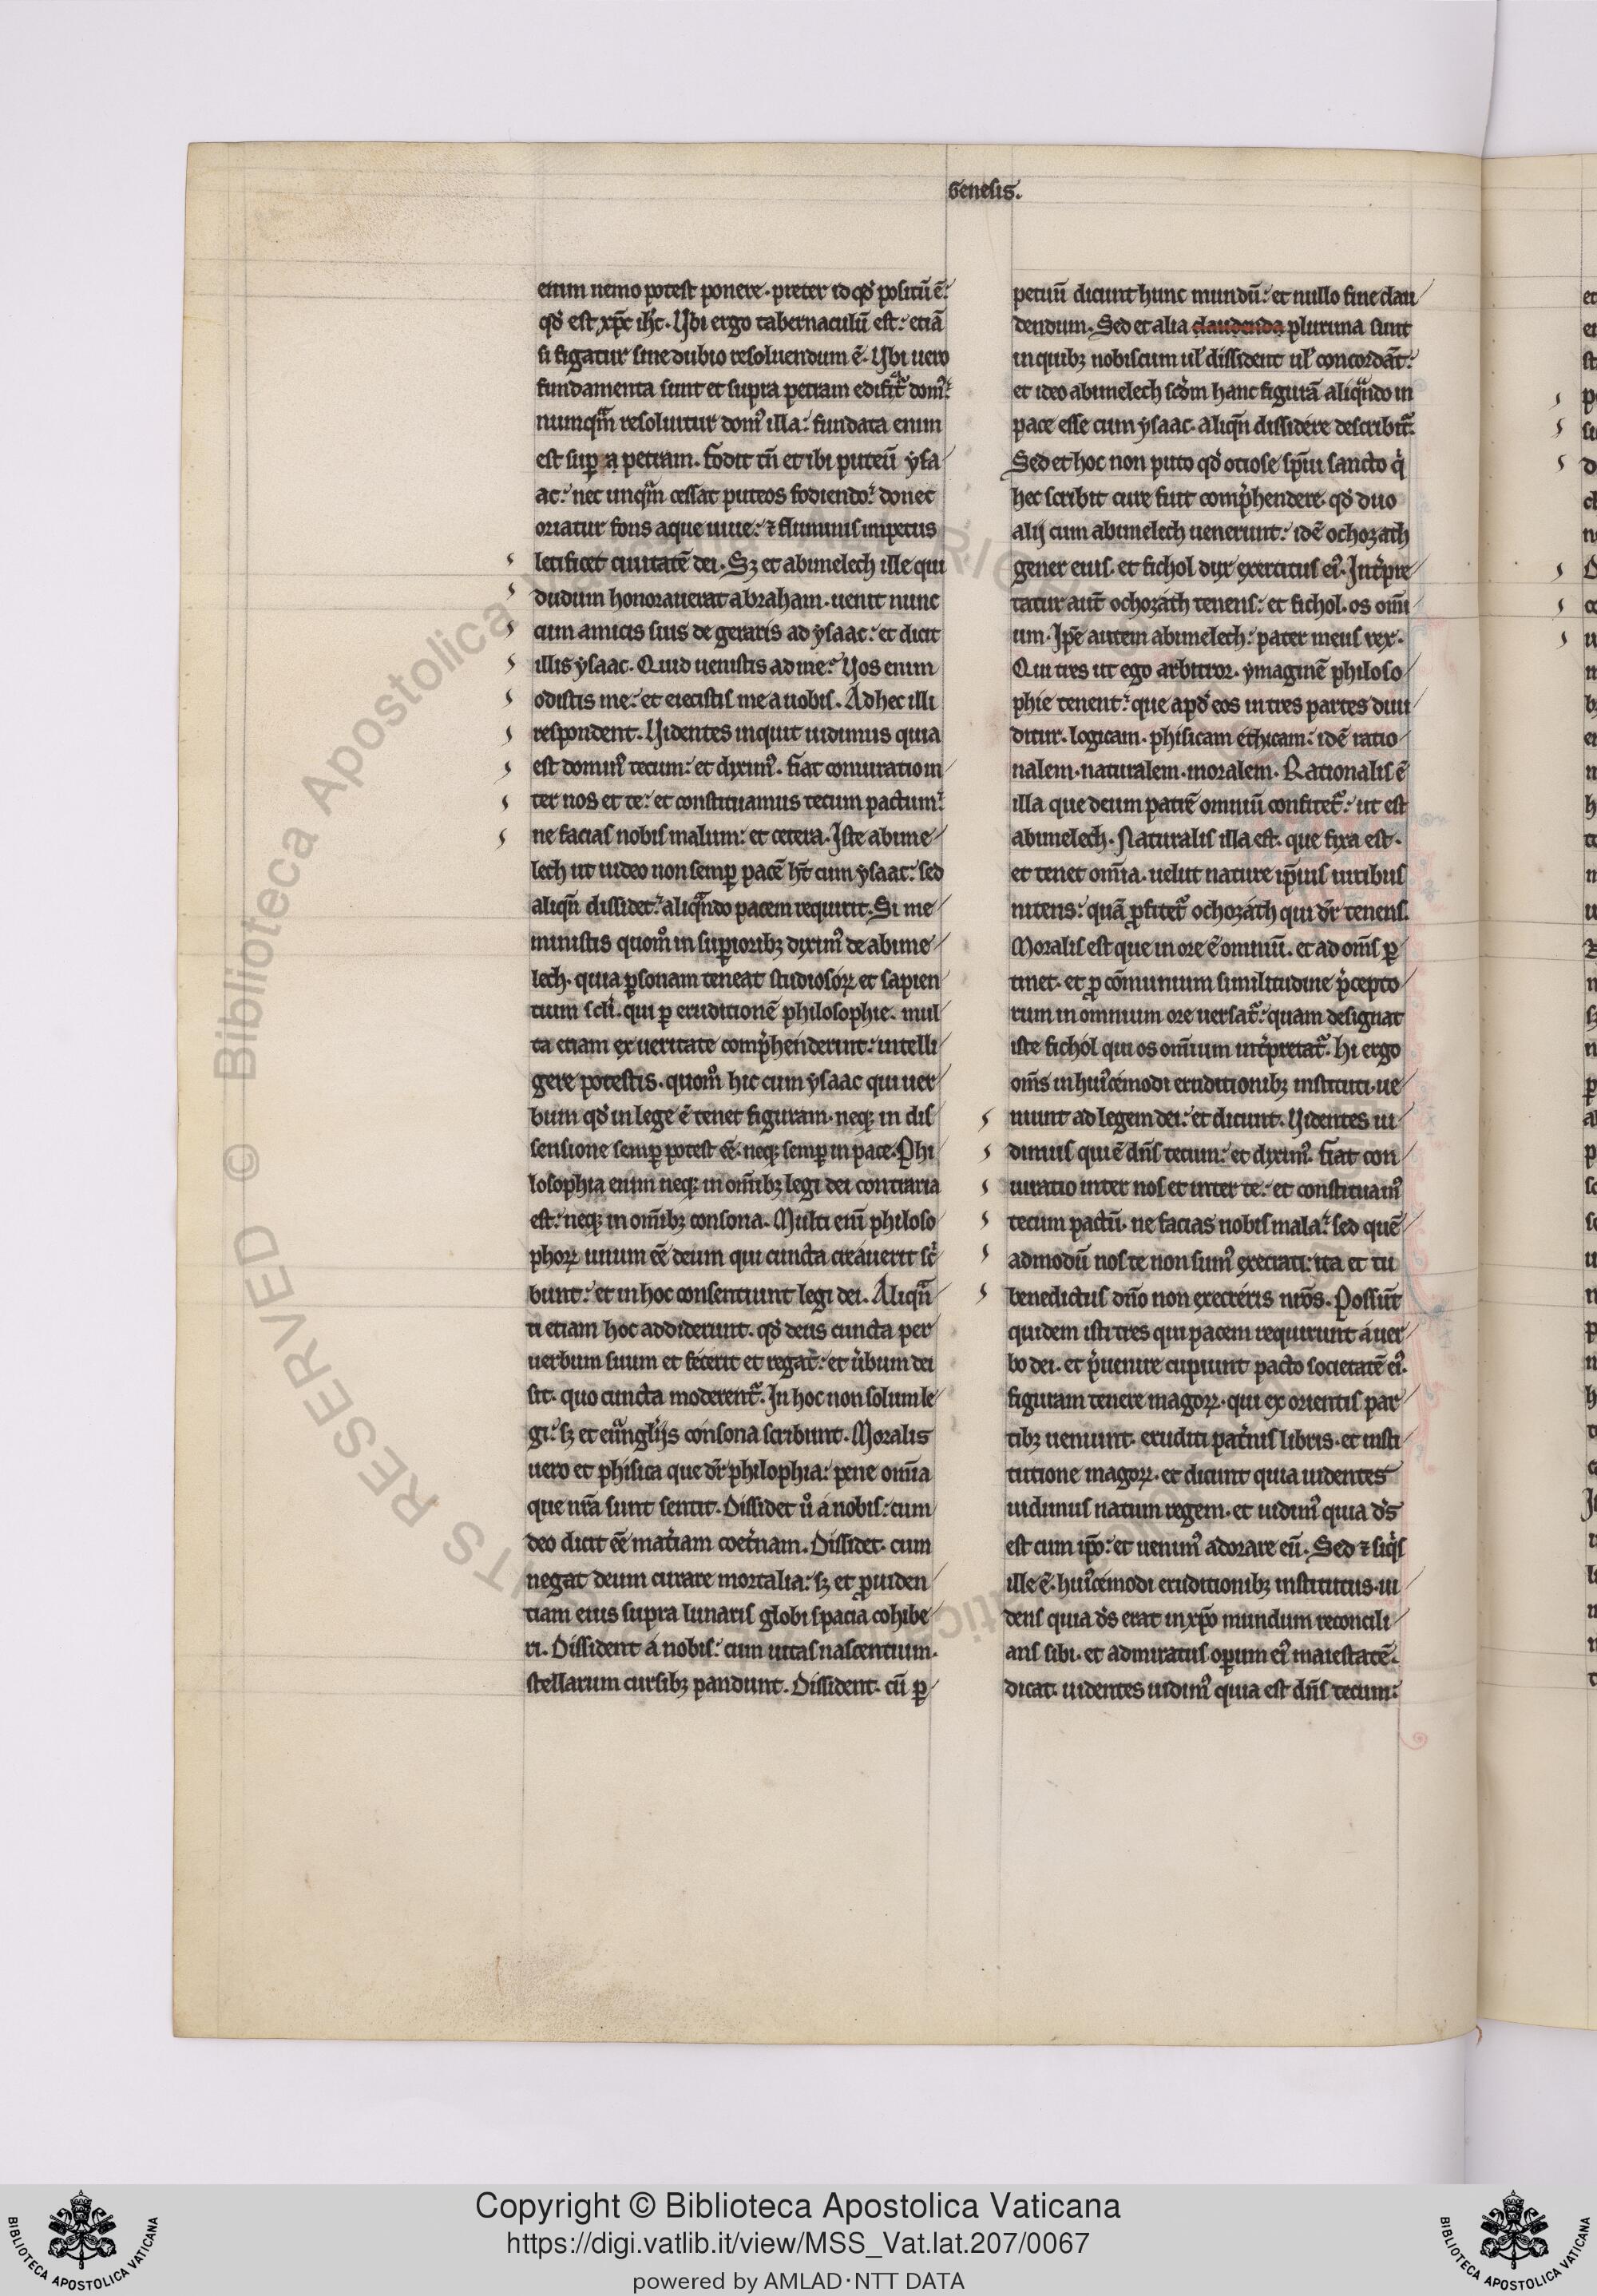 Genesis.
enim nemo potest ponere. preter id qď positū ē.
qď est xp̄c ih̄c. Vbi ergo tabernaculū est: etiā
si figatur sine dubio resoluendum ē. Vbi uero
fundamenta sunt et supra petram edificať domꝰ:
numqm̄ resoluitur domꝰ illa: fundata enim
est sup̱ petram. fodit tn̄ et ibi puteū ysa
ac: nec unqm̄ cessat puteos fodiendo: donec
oriatur fons aque uiue: ⁊ fluminis impetus
letificet ciuitatē dei. Sꝫ et abimelech ille qui
dudum honorauerat abraham. uenit nunc
cum amicis suis de geraris ad ysaac: et dicit
illis ysaac. Quid uenistis ad me: Vos enim
odistis me: et eiecistis me a uobis. Ad hec illi
respondent. Videntes inquit uidimus quia
est dominꝰ tecum: et diximꝰ. fiat coniuratio in
ter nos et te: et constituamus tecum pactum:
ne facias nobis malum: et cetera. Iste abime
lech ut uideo non semp̱ pacē hт̄ cum ysaac: sed
aliqn̄ dissidet: aliqᵃndo pacem requirit. Si me
ministis quom̊ in sup̱ioribꝫ diximꝰ de abime
lech. quia p̱sonam teneat studiosoꝝ et sapien
tium scl̓i. qui p̱ eruditionē philosophie. mul
ta etiam ex ueritate comp̓henderint: intelli
gere potestis. quom̊ hic cum ysaac qui uer
bum qď in lege ē tenet figuram. neqꝫ in dis
sensione semp̱ potest eē. neqꝫ semp̱ in pace. Phi
losophia enim neqꝫ in om̄ibꝫ legi dei contraria
est: neqꝫ in om̄ibꝫ consona. Multi eni̅ philoso
phoꝝ unum eē deum qui cuncta creauerit sc̓
bunt: et in hoc consentiunt legi dei. Aliqᵃn
ti etiam hoc addiderunt. qď deus cuncta per
uerbum suum et fecerit et regat: et u̓bum dei
sit. quo cuncta moderent̃. In hoc non solum le
gi: sꝫ et euᵃngl̓ijs consona scribunt. Moralis
uero et phisica que dr̄ philophia: pene om̄ia
que nr̄a sunt sentit. Dissidet ů a nobis: cum
deo dicit eē mat̓iam coet̓nam. Dissidet. cum
negat deum curare mortalia: sꝫ et ꝓuiden
tiam eius supra lunaris globi spacia cohibe
ri. Dissident a nobis: cum uitas nascentium.
stellarum cursibꝫ pandunt. Dissident. cū p̱
petuū dicunt hunc mundū: et nullo fine clau
dendum. Sed et alia claudenda plurima sunt
in quibꝫ nobiscum ul̓ dissident ul̓ concordāt:
et ideo abimelech scd̓m hanc figurā aliqᵃndo in
pace esse cum ysaac. aliqn̄ dissidere describit̃.
Sed et hoc non puto qď otiose sp̄iu sancto q̓
hec scribit cure fuit comp̓hendere. qď duo
alij cum abimelech uenerunt: idē ochozath
gener eius. et fichol dux exercitus eiꝰ. Int̓pre
tatur aut̄ ochozath tenens: et fichol. os om̄i
um. Ip̄e autem abimelech: pater meus rex.
Qui tres ut ego arbitror. ymaginē philoso
phie tenent: que apď eos in tres partes diui
ditur. logicam. phisicam ethicam: idē ratio
nalem. naturalem. moralem. Rationalis ē
illa que deum patrē omniū confitet̃: ut est
abimelech. Naturalis illa est. que fixa est.
et tenet om̄ia. uelut nature ip̄ius uiribus
nitens: quā ꝓfitet̃ ochozath qui dr̄ tenens.
Moralis est que in ore ē omniū. et ad om̄s p̱
tinet. et ꝓ cōmunium similitudine p̓cepto
rum in omnium ore uersat̃: quam designat
iste fichol qui os om̄ium int̓pretat̃. Hi ergo
om̄s in huiꝰcemodi eruditionibꝫ instituti. ue
niunt ad legem dei: et dicunt. Videntes ui
dimus qui ē dn̄s tecum: et diximꝰ. fiat con
iuratio inter nos et inter te: et constituamꝰ
tecum pactū. ne facias nobis mala: sed quē
admodū nos te non sumꝰ execrati: ita et tu
benedictus dn̄o non execreris nr̄os. Possūt
quidem isti tres qui pacem requirunt a uer
bo dei. et p̓uenire cupiunt pacto societatē eiꝰ.
figuram tenere magoꝝ. qui ex orientis par
tibꝫ ueniunt. eruditi pat̓nis libris. et insti
tutione magoꝝ. et dicunt quia uidentes
uidimus natum regem. et uidimꝰ quia d̓s
est cum ip̄o: et uenimꝰ adorare eū. Sed ⁊ siq̓s
ille ē. huiꝰcemodi eruditionibꝫ institutus. ui
dens quia d̓s erat in xp̄o mundum reconcili
ans sibi. et admiratus op̱um eiꝰ maiestatē.
dicat. uidentes uidimꝰ quia est dn̄s tecum:
© Biblioteca Apostolica Vaticana
Copyright © Biblioteca Apostolica Vaticana
https://digi.vatlib.it/view/MSS_Vat.lat.207/0067
powered by AMLAD·NTT DATA
BIBLIOTECA APOSTOLICA VATICANA
BIBLIOTECA APOSTOLICA VATICANA